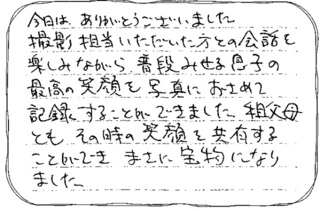 今日は、ありがとうございました
撮影担当いただいた方との会話を
楽しみながら 普段みせる息子の
最高の笑顔を写真におさめて
記録することができました。祖父母
とも その時の笑顔を共有する
ことができ まさに宝物になり
ました。